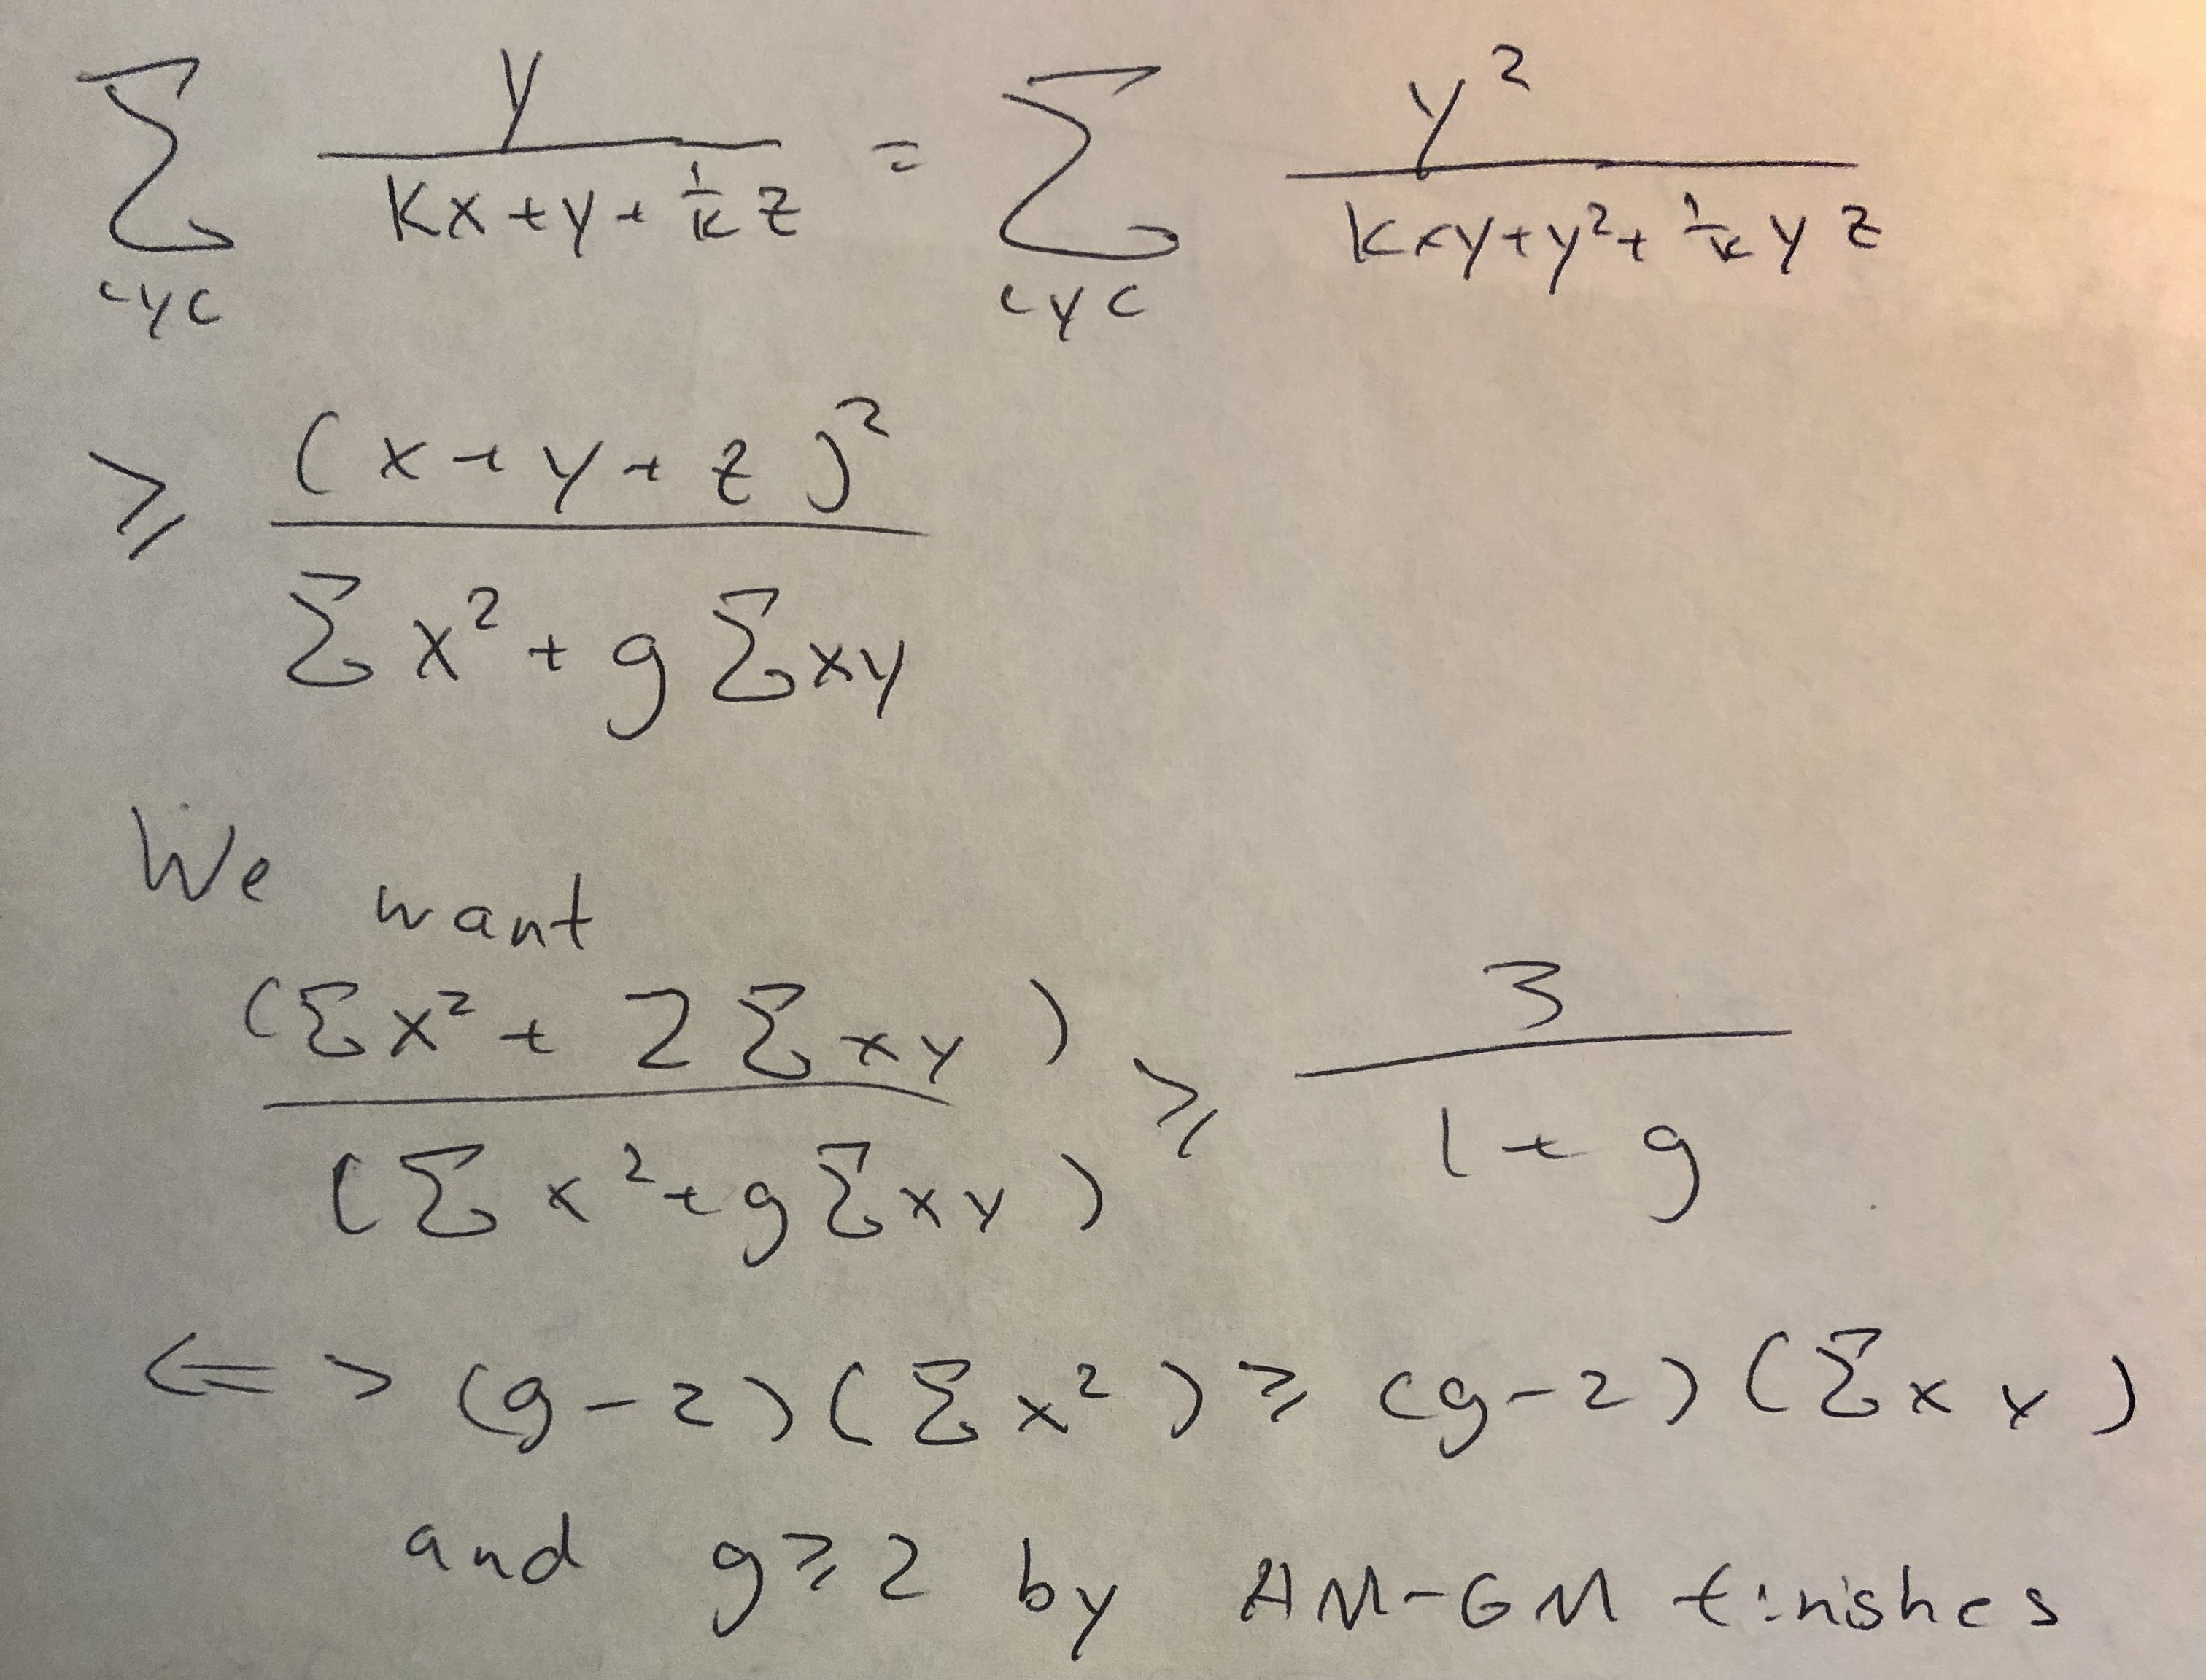 ∑_{cyc} y/(kx+y+(1/k)z) = ∑_{cyc} y²/(kxy+y²+(1/k)yz)
≥ (x+y+z)²/(∑x²+g∑xy)
We want
(∑x²+2∑xy)/(∑x²+g∑xy) ≥ 3/(1+g)
<=> (g-2)(∑x²) ≥ (g-2)(∑xy)
and g≥2 by AM-GM finishes